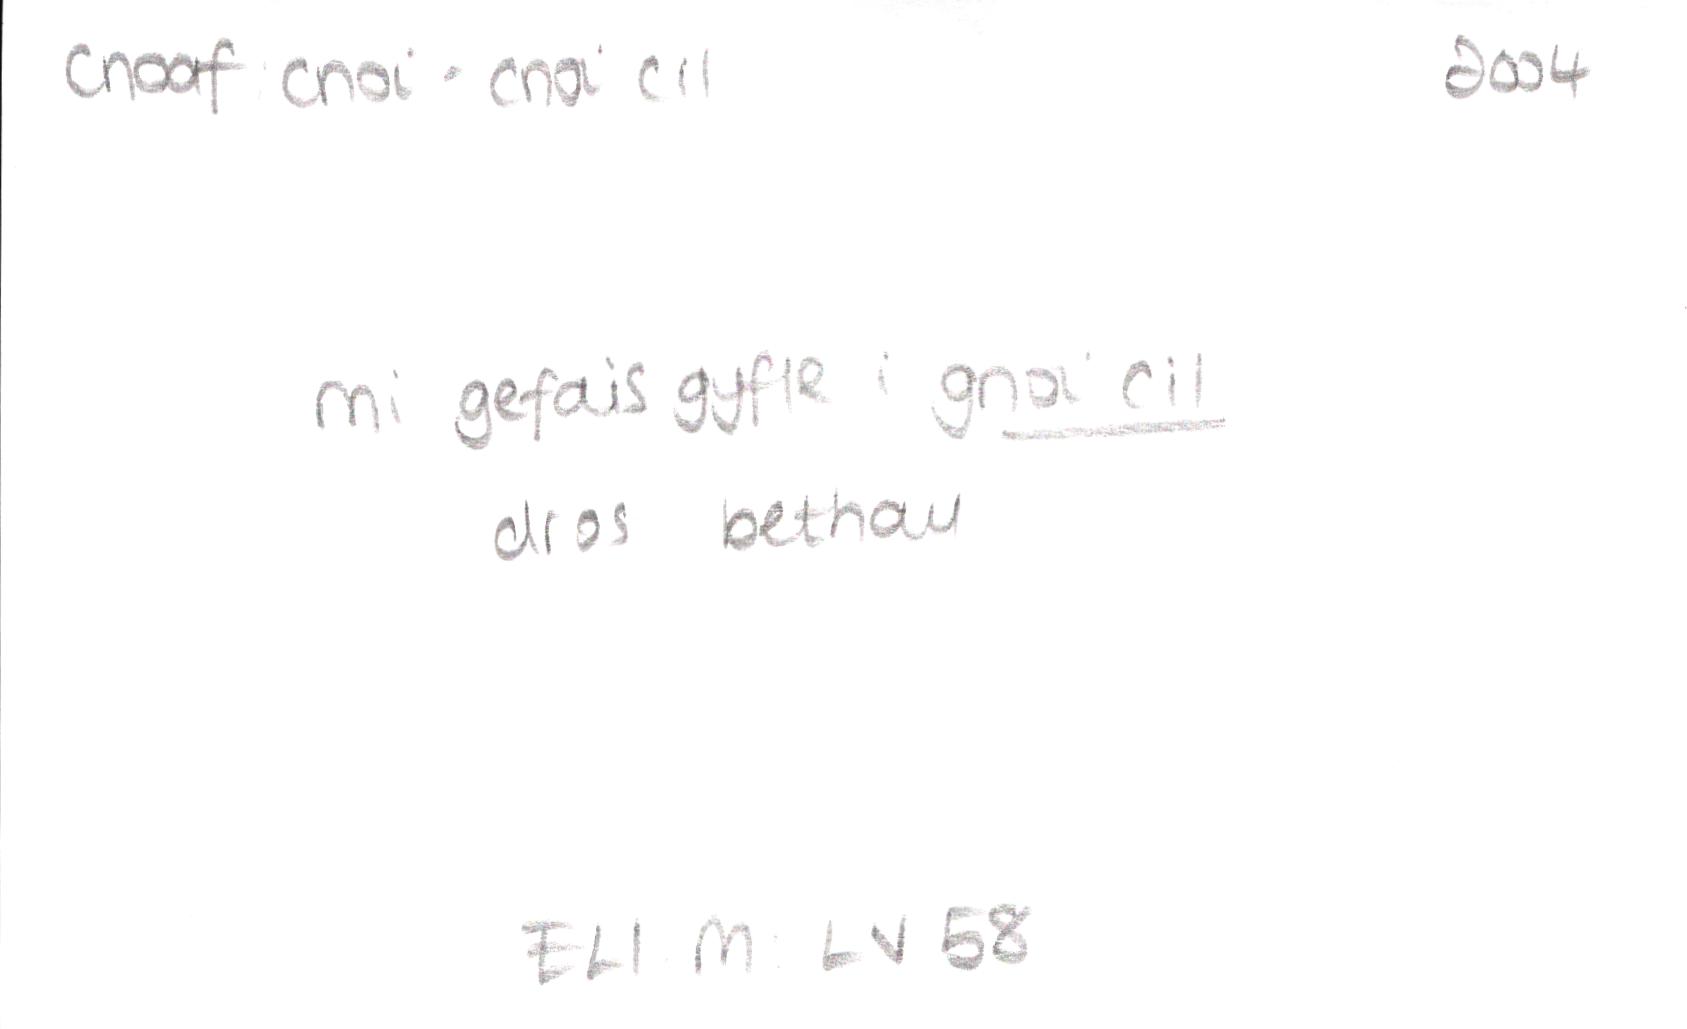 cnoaf : cnoi · cnoi cil 2004
mi gefais gyfle i gnoi cil
dros bethau
ELI M: LV 58